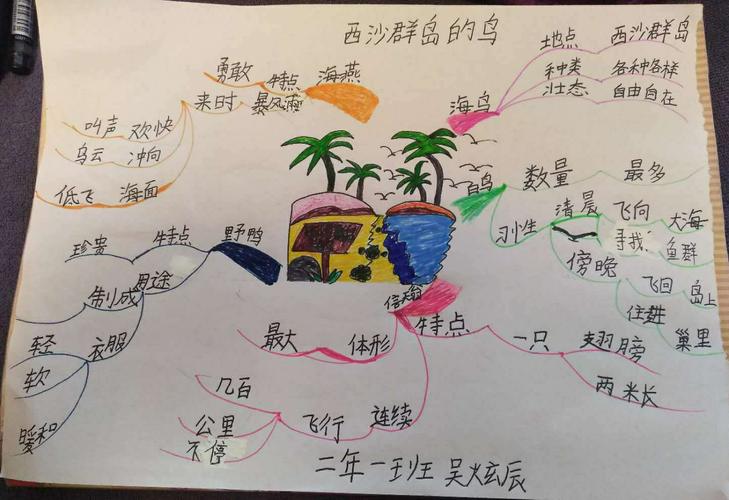 西沙群岛的鸟
海鸟
地点 西沙群岛
种类 各种各样
壮态 自由自在
白鸟
数量 最多
习性
清晨 飞向 大海
寻找 鱼群
傍晚
飞回 岛上
住进 巢里
信天翁
特点 一只 翅膀
两米长
体形 最大
连续 飞行 几百
公里
不停
野鸭
特点 珍贵
用途 制成 衣服
轻
软
暖和
海燕
特点 勇敢
暴风雨 来时
叫声 欢快
冲向 乌云
低飞 海面
二年一班 吴炫辰